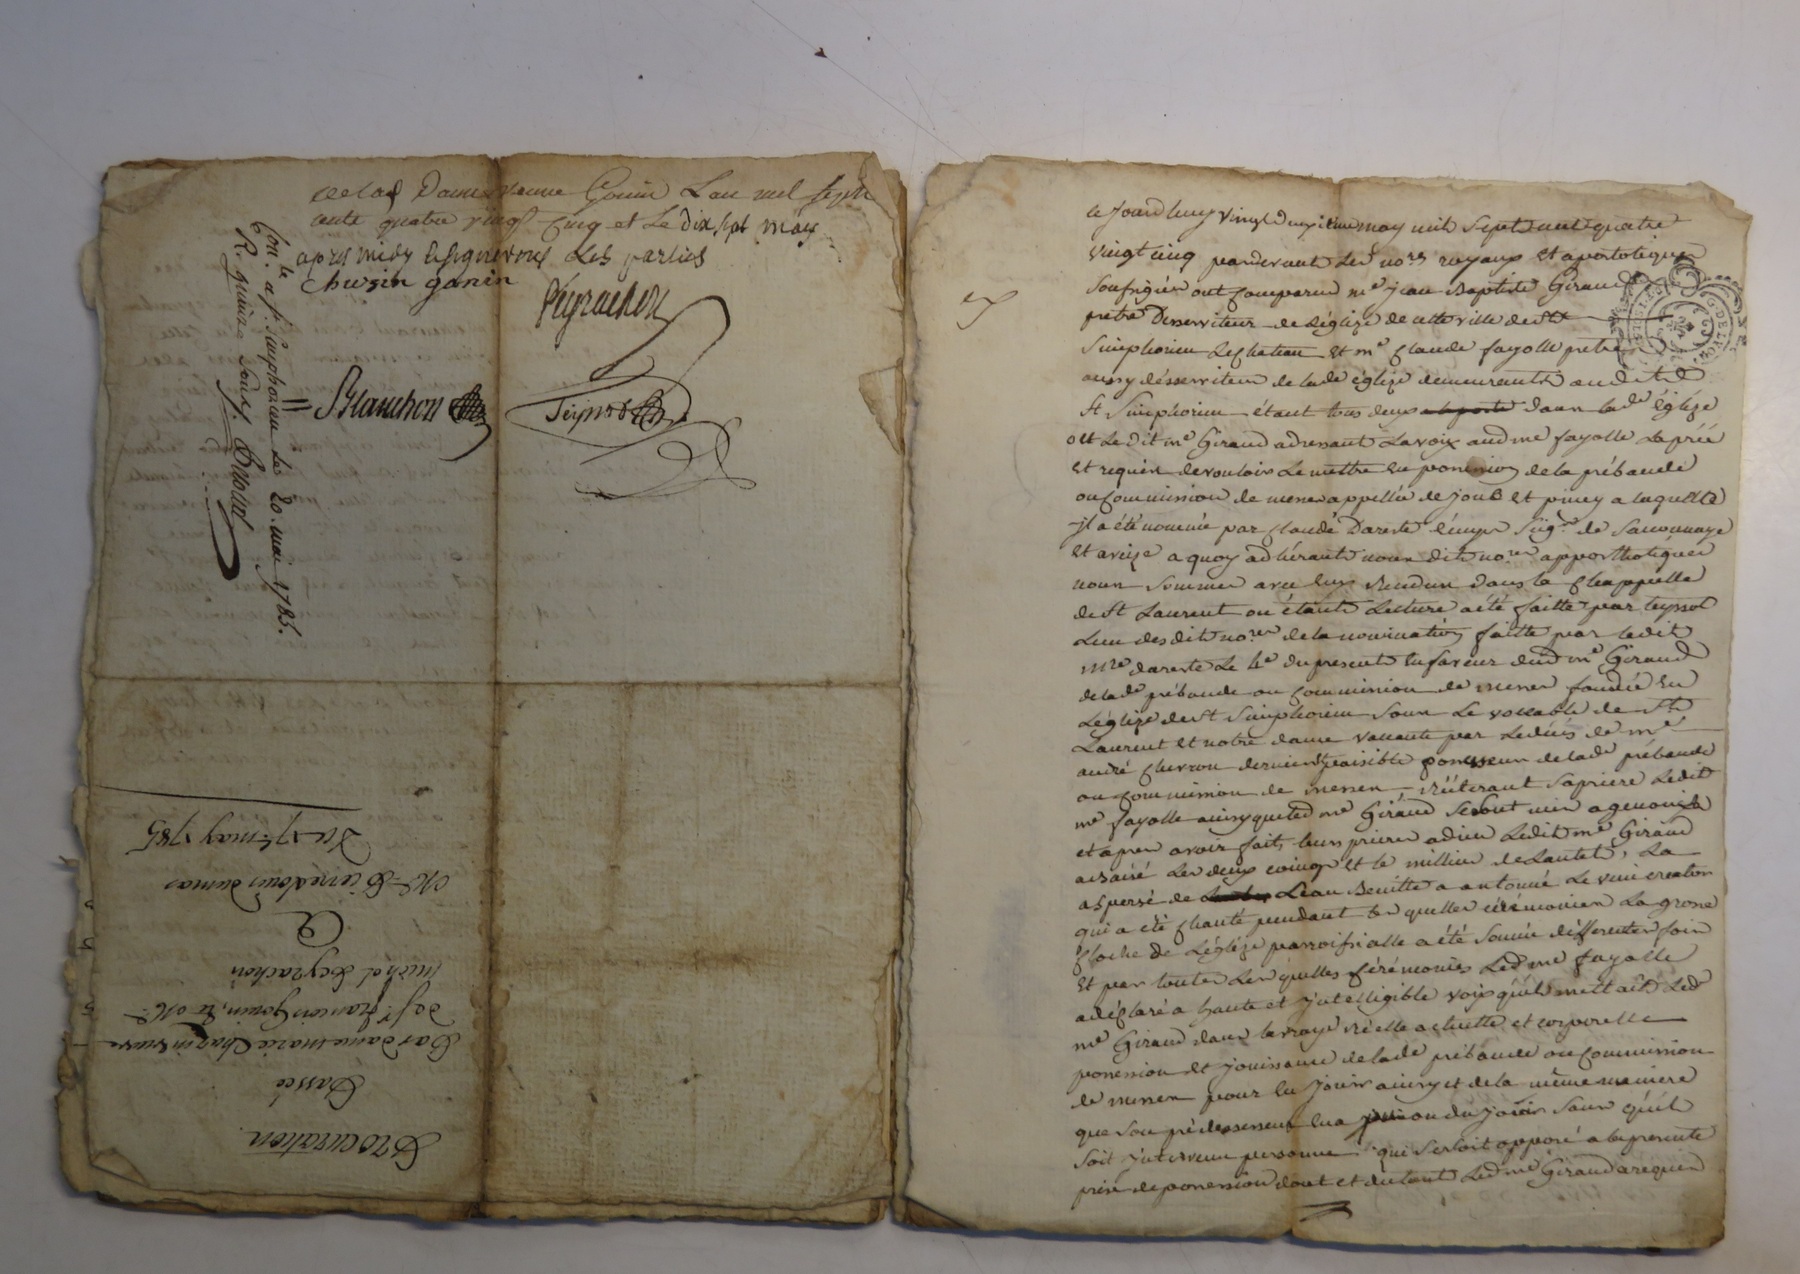 Dame veuve Gonin L'an mil sept
cents quatre vingt cinq et le dix sept may
apres midy et signeront les parties
chuzin gonin
Peyrachon
Blanchon
Teyssot
Con.le a St. Simphorien le 20. mai 1785.
R. quinze sous.
Procuration.
Passée
Par dame marie Chuzin veuve
de sr. francois Gonin, & Me
michel Peyrachon
A
Me Pierre Louis dumas
Du 17e may 1785
ce Jourd'huy vingt deuxieme may mil Sept cent quatre
vingt cinq pardevant Les nores royaux et apostolique
Soussignés ont comparu me jean Baptiste Giraud
pretre Desserviteur de L'églize de cette ville de St
Simphorien Le chateau et me claude fayolle pretre
aussy désserviteur de lade églize demeurants audit
St Simphorien étant tous deux dans lade églize
et Le dit me Giraud adressant La voix aud me fayolle La prié
et requis de vouloir Le mettre en possession de la prébande
ou commission de messes appellée de joub et piney a laquelle
il a été nommé par claude Dareste écuyer Seigr de Saconnaye
et aveize a quoy adhérants nous dits nores apposthotiques
nous sommes avec eux rendus dans la chappelle
de St Laurent ou étants Lecture a été faitte par teyssot
L'un desdits nores de la nomination faitte par ledit
mre dareste Le 4e du present en faveur dud me Giraud
de lade prébande ou commission de messes fondée en
L'églize de St Simphorien sous Le vocable de St
Laurent et notre dame vaccante par Le décés de me
andré chevron dernier paisible possesseur de lade prébande
ou commission de messes réiterant sa priere Ledit
me fayolle ainsy que led me Giraud se sont mis a genouils
et apres avoir fait leurs prieres a dieu Ledit me Giraud
a baisé Les deux coings et le millieu de L'autel, La
aspersé de L'eau Benitte a antonné Le veni creator
qui a été chanté pendant les quelles cérémonies La grosse
cloche de L'églize parroissialle a été sonnée differentes fois
et par toutes Les quelles cérémonies Led me fayolle
a déclaré a haute et jntelligible voix qu'il mettait Led
me Giraud dans la vraye réelle actuelle et corporelle
possession et jouissance de lade prébande ou commission
de messes pour en jouir ainsy et de la même maniere
que son prédessesseur en a joui ou du jouir sans qu'il
soit jntervenu personne qui se soit opposé a la presente
prise de possession dont et du tout Led me Giraud a requis